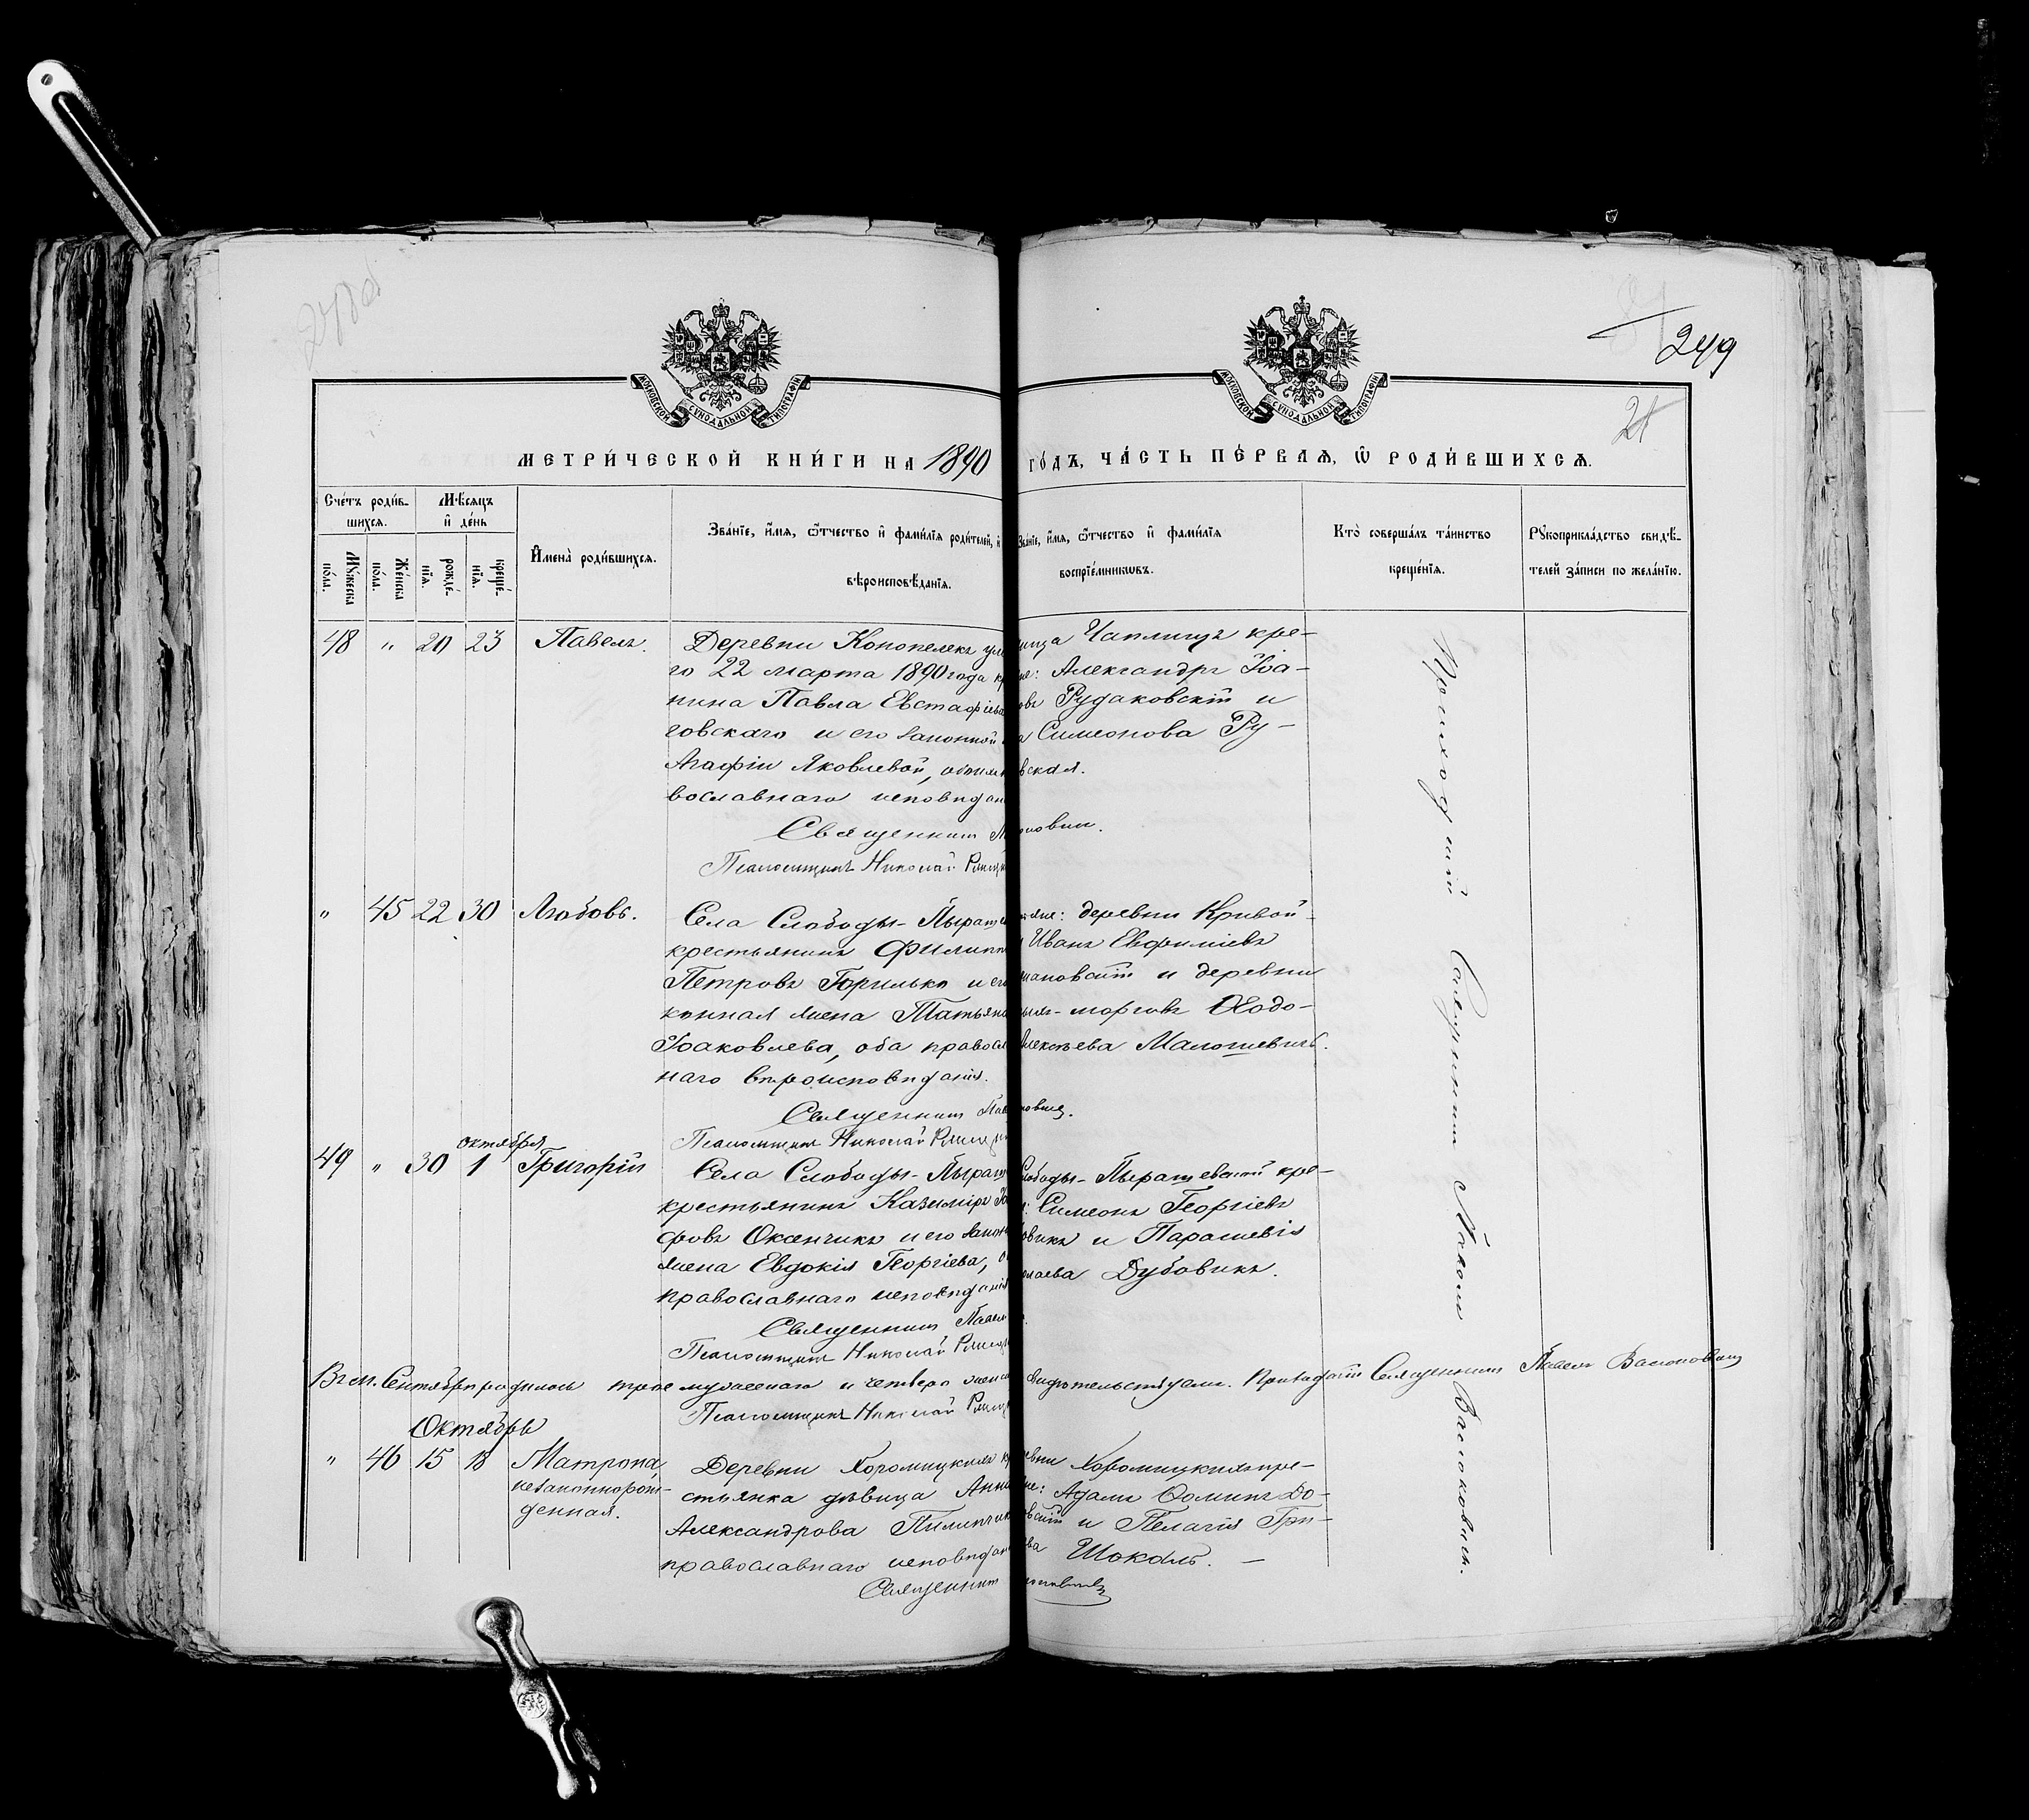 249
21
МОСКОВСКОЙ СУНОДАЛЬНОЙ ТИПОГРАФІИ
МОСКОВСКОЙ СУНОДАЛЬНОЙ ТИПОГРАФІИ
МЕТРИ́ЧЕСКОЙ КНИ́ГИ НА 1890 ГО́ДЪ, ЧА́СТЬ ПЕ́РВАѦ, Ѽ РОДИ́ВШИХСѦ.
Сче́тъ роди́в-
шихсѧ.
Мѣ́сяцъ
и҆ де́нь
Мꙋ́жеска
по́ла.
Же́нска
по́ла.
рожде́-
нїѧ.
креще́-
нїѧ.
И҆мена̀ роди́вшихсѧ.
Зва́нїе, и҆́мѧ, ѻ҆́тчество и҆ фами́лїѧ роди́телей, и҆
вѣроисповѣ́данїѧ.
Зва́нїе, и҆́мѧ, ѻ҆́тчество и҆ фами́лїѧ
воспрїе́мникѡвъ.
Кто̀ соверша́лъ та́инство
креще́нїѧ.
Рꙋкоприкла́дство свидѣ́-
телей за́писи по жела́нїю.
48 " 20 23 Павелъ.
Деревни Конопелекъ ум
го 22 марта 1890 года кр
нина Павла Евстафіева
говскаго и его законной
Агафіи Яковлевой, обоихъ
вославнаго исповѣдан
Священникъ
Псаломщикъ Николай
Чаплицъ кре-
не: Александръ Іоа-
овъ Рудаковскій и
а Симеонова Ру-
вская.
" 45 22 30 Любовь.
Села Слободы-Пыраше
крестьянинъ Филиппъ
Петровъ Горилько и его
конная жена Татьяна
Іоаковлева, оба правосл
наго вѣроисповѣданія.
Священникъ
Псаломщикъ Николай
яне: деревни Кривой-
Иванъ Евфиміевъ
мановскій и деревни
морговъ Ходо-
Алексѣева Малошевичъ.
октября
49 " 30 1 Григорій
Села Слободы-Пыраш
крестьянинъ Казиміръ Іо
фовъ Оксенчикъ и его закон
жена Евдокія Георгіева, о
православнаго исповѣданія
Священникъ Павелъ
Псаломщикъ Николай
лободы-Пырашевской кре-
: Симеонъ Георгіевъ
овикъ и Параскевія
олаева Дубовикъ.
Въ м. Сентябрѣ родилось трое мужескаго и четверо женск видѣтельствуемъ. Приходскій Священникъ Павелъ Васюковичъ
Псаломщикъ Николай
Октябрь
" 46 15 18 Матрона,
незаконнорож-
денная.
Деревни Хоромицкихъ кр
стьянка дѣвица Анна
Александрова Пилипчик
православнаго исповѣдан
Священникъ
евни Хоромицкихъ кре-
не: Адамъ Ѳоминъ До-
вскій и Пелагія Гри-
ва Шокаль. —
Приходскій Священникъ Павелъ Васюковичъ.